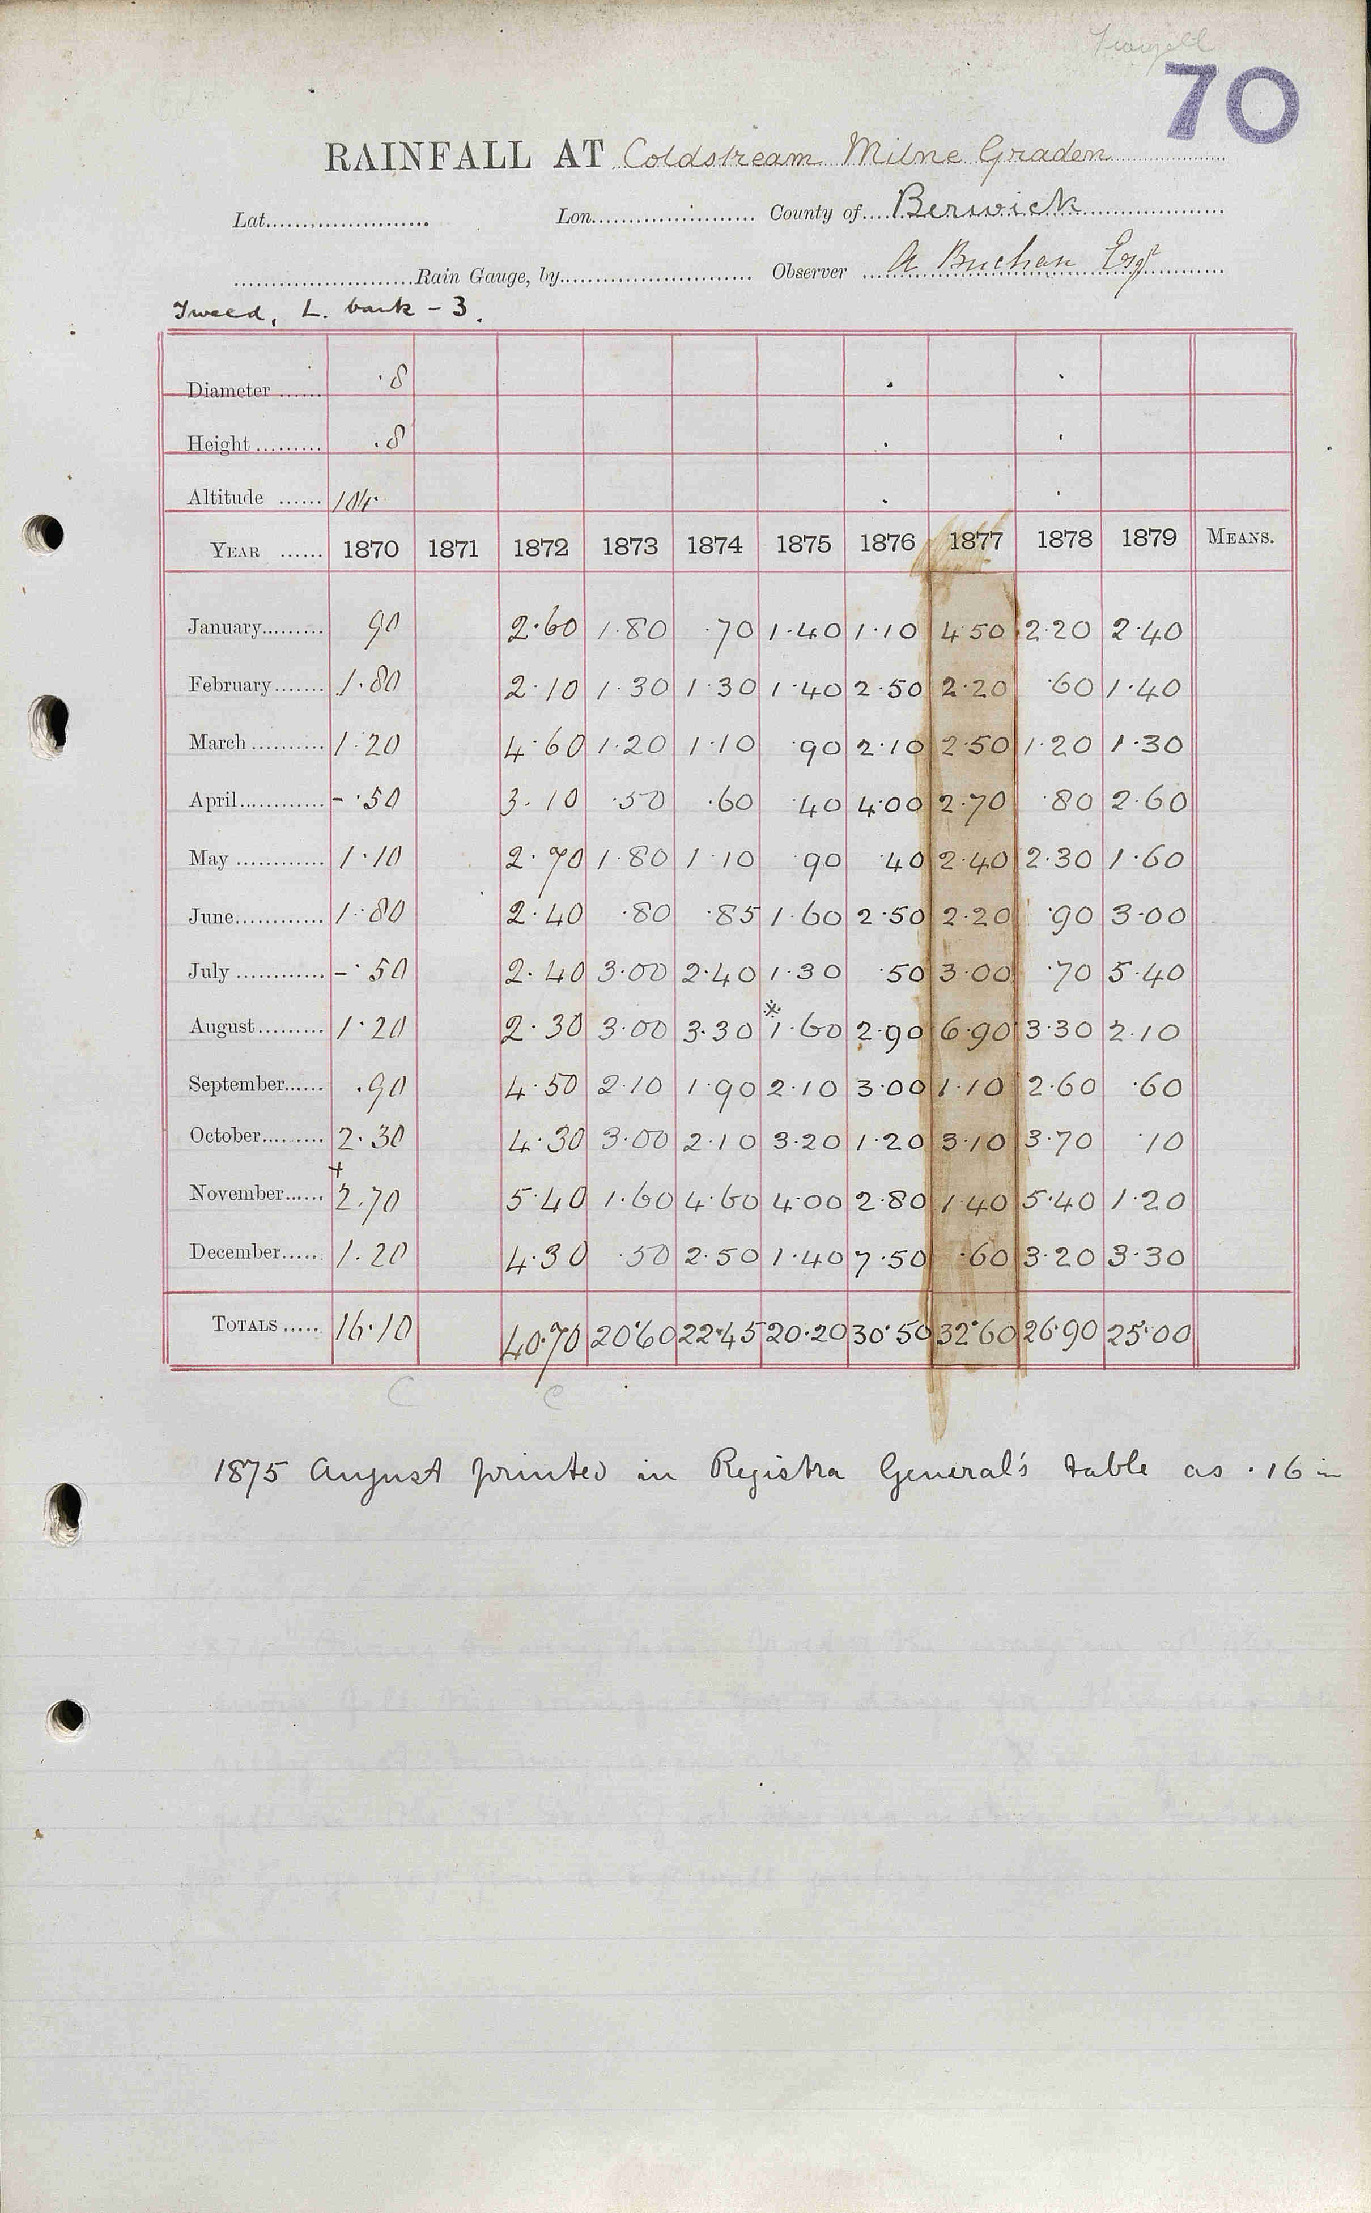 70
RAINFALL AT Coldstream Milne Graden
Lat. Lon. County of Berwick
Rain Gauge, by Observer A Buchan Esqr
Tweed, L. bank - 3.
Diameter ...... .8
Height ......... .8
Altitude ...... 104
YEAR ...... 1870 1871 1872 1873 1874 1875 1876 1877 1878 1879 MEANS.
January......... 90 2.60 1.80 .70 1.40 1.10 4.50 2.20 2.40
February....... 1.80 2.10 1.30 1.30 1.40 2.50 2.20 .60 1.40
March .......... 1.20 4.60 1.20 1.10 .90 2.10 2.50 1.20 1.30
April............ -.50 3.10 .50 .60 .40 4.00 2.70 .80 2.60
May ............ 1.10 2.70 1.80 1.10 .90 .40 2.40 2.30 1.60
June............ 1.80 2.40 .80 .85 1.60 2.50 2.20 .90 3.00
July ............ -.50 2.40 3.00 2.40 1.30 .50 3.00 .70 5.40
August......... 1.20 2.30 3.00 3.30 ※1.60 2.90 6.90 3.30 2.10
September...... .90 4.50 2.10 1.90 2.10 3.00 1.10 2.60 .60
October......... 2.30 4.30 3.00 2.10 3.20 1.20 3.10 3.70 .10
November...... +2.70 5.40 1.60 4.60 4.00 2.80 1.40 5.40 1.20
December..... 1.20 4.30 .50 2.50 1.40 7.50 .60 3.20 3.30
TOTALS ..... 16.10 40.70 20.60 22.45 20.20 30.50 32.60 26.90 25.00
C C
1875 August printed in Registra General's table as .16 in